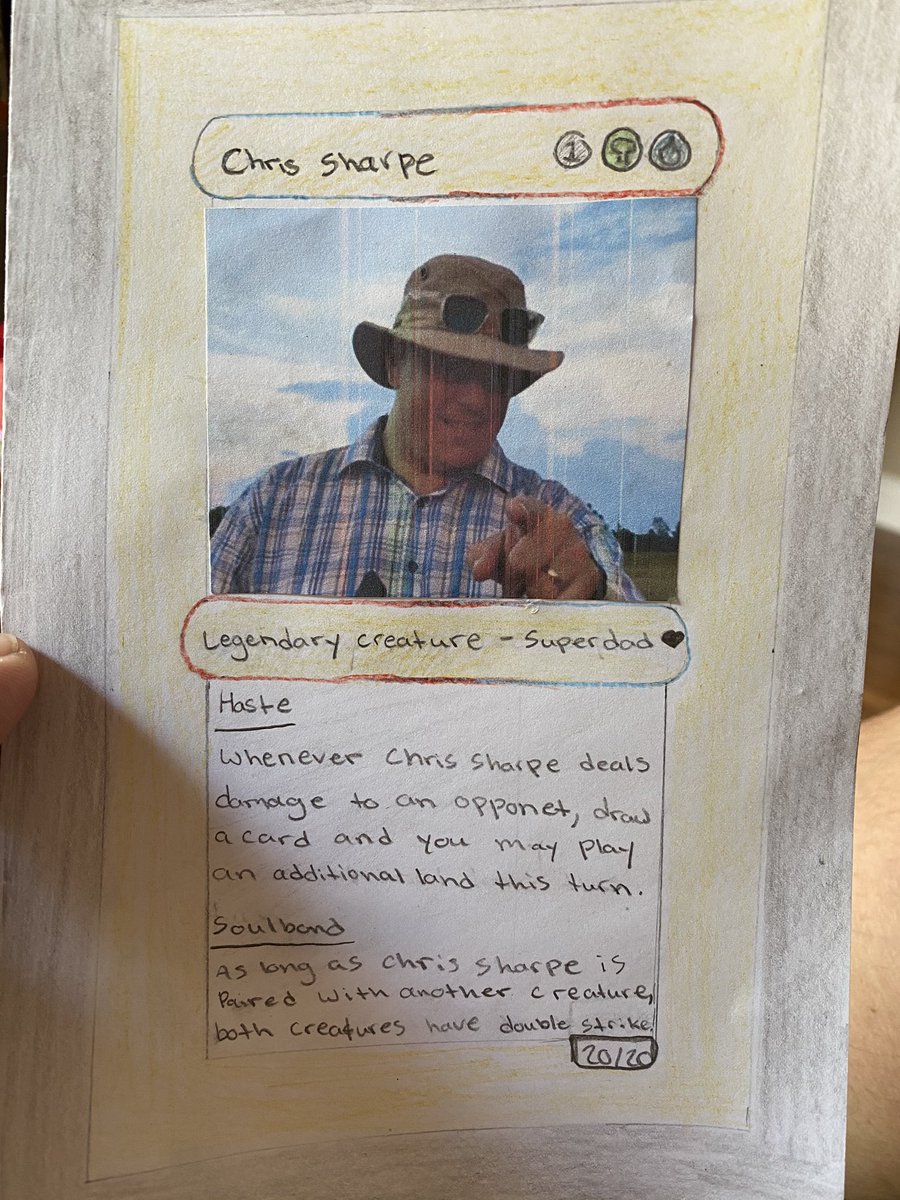 Chris Sharpe 1
Legendary creature - Superdad
Haste
Whenever Chris Sharpe deals
damage to an opponet, draw
a card and you may play
an additional land this turn.
Soulbond
As long as Chris Sharpe is
Paired with another creature,
both creatures have double strike.
20/20